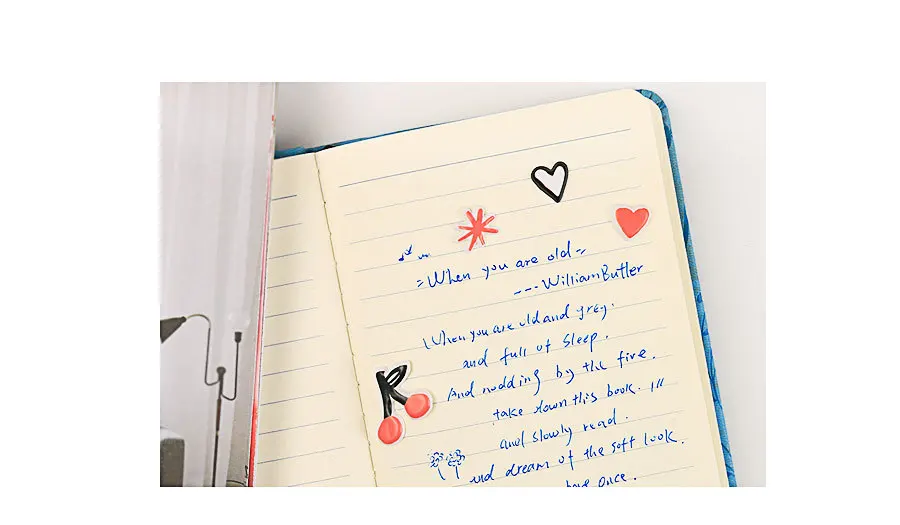 When you are old
---William Butler
When you are old and grey.
and full of sleep.
And nodding by the fire.
take down this book.
and slowly read.
and dream of the soft look.
have once.